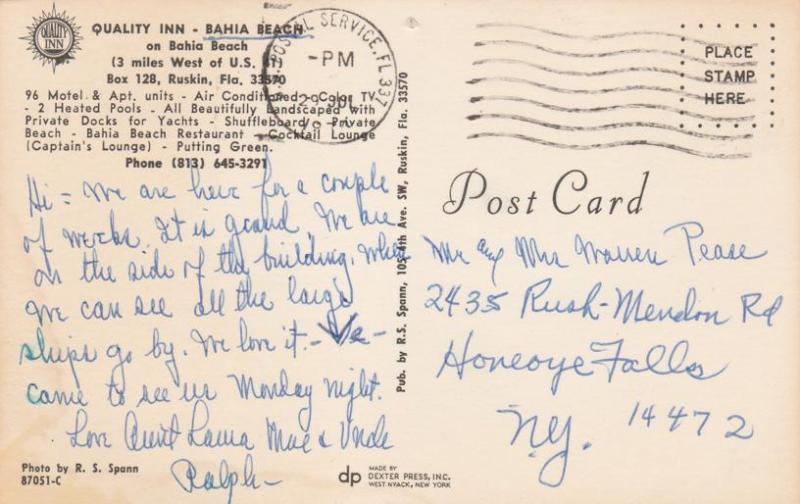 QUALITY INN
QUALITY INN - BAHIA BEACH
on Bahia Beach
(3 miles West of U.S. 41)
Box 128, Ruskin, Fla. 33570
96 Motel & Apt. units - Air Conditioned - Color TV
- 2 Heated Pools - All Beautifully Landscaped with
Private Docks for Yachts - Shuffleboard - Private
Beach - Bahia Beach Restaurant - Cocktail Lounge
(Captain's Lounge) - Putting Green.
Phone (813) 645-3291
Hi = We are here for a couple
of weeks. It is grand. We are
on the side of the building, where
we can see all the large
ships go by. We love it. -
came to see us Monday night.
Love Aunt Laura Mae & Uncle
Ralph -
Photo by R. S. Spann
87051-C
Pub. by R.S. Spann, 105 4th Ave. SW, Ruskin, Fla. 33570
POSTAL SERVICE, FL 337
-PM
29
PLACE
STAMP
HERE
Post Card
Mr and Mrs Warren Pease
2435 Rush-Mendon Rd
Honeoye Falls
N.Y. 14472
dp MADE BY
DEXTER PRESS, INC.
WEST NYACK, NEW YORK